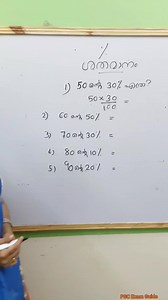 %
ശതമാനം
1) 50 ന്റെ 30% എത്ര?
50 x 30
100 =
2) 60 ന്റെ 50% =
3) 70 ന്റെ 30% =
4) 80 ന്റെ 10% =
5) 90 ന്റെ 20% =
PSC Exam Guide